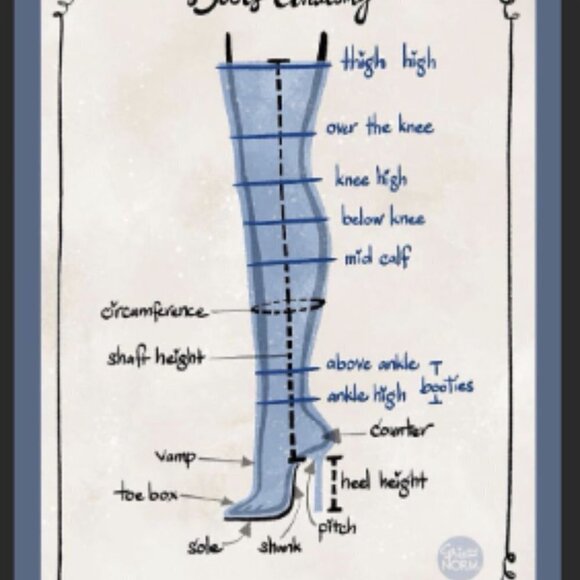 Boots Anatomy
thigh high
over the knee
knee high
below knee
mid calf
circumference
shaft height
above ankle
ankle high
booties
counter
vamp
heel height
toe box
pitch
sole
shank